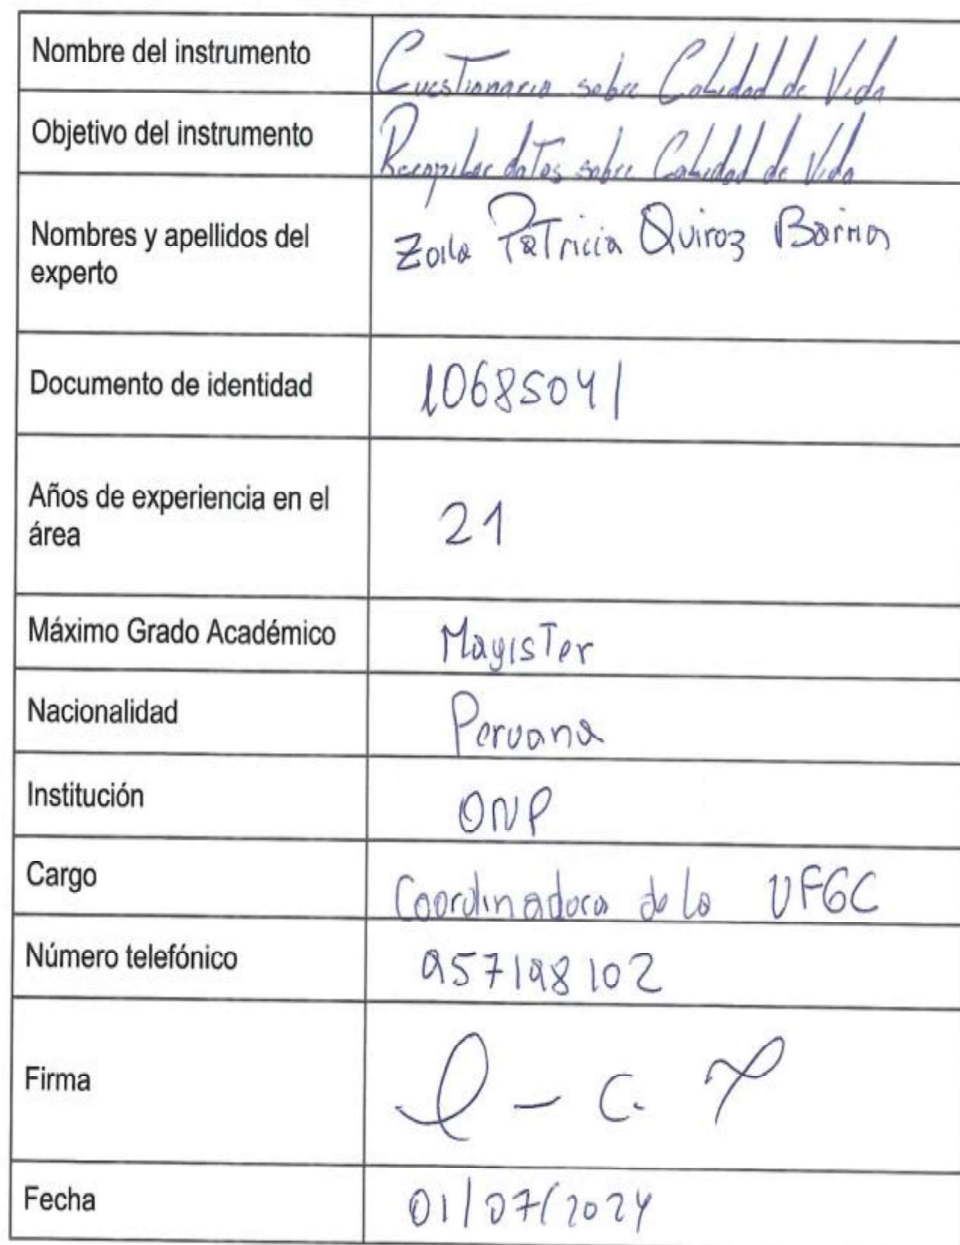 Nombre del instrumento
Cuestionario sobre Calidad de Vida
Objetivo del instrumento
Recopilar datos sobre Calidad de Vida
Nombres y apellidos del
experto
Zoila Patricia Quiroz
Documento de identidad
10685041
Años de experiencia en el
área
21
Máximo Grado Académico
Magister
Nacionalidad
Peruana
Institución
ONP
Cargo
Coordinadora de la UFGC
Número telefónico
957198102
Firma
Fecha
01/07/2024